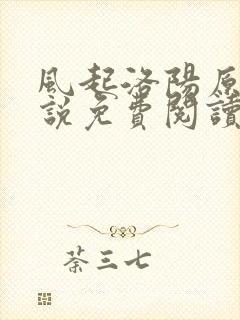 風起洛陽原
說免費閱讀
荼三七